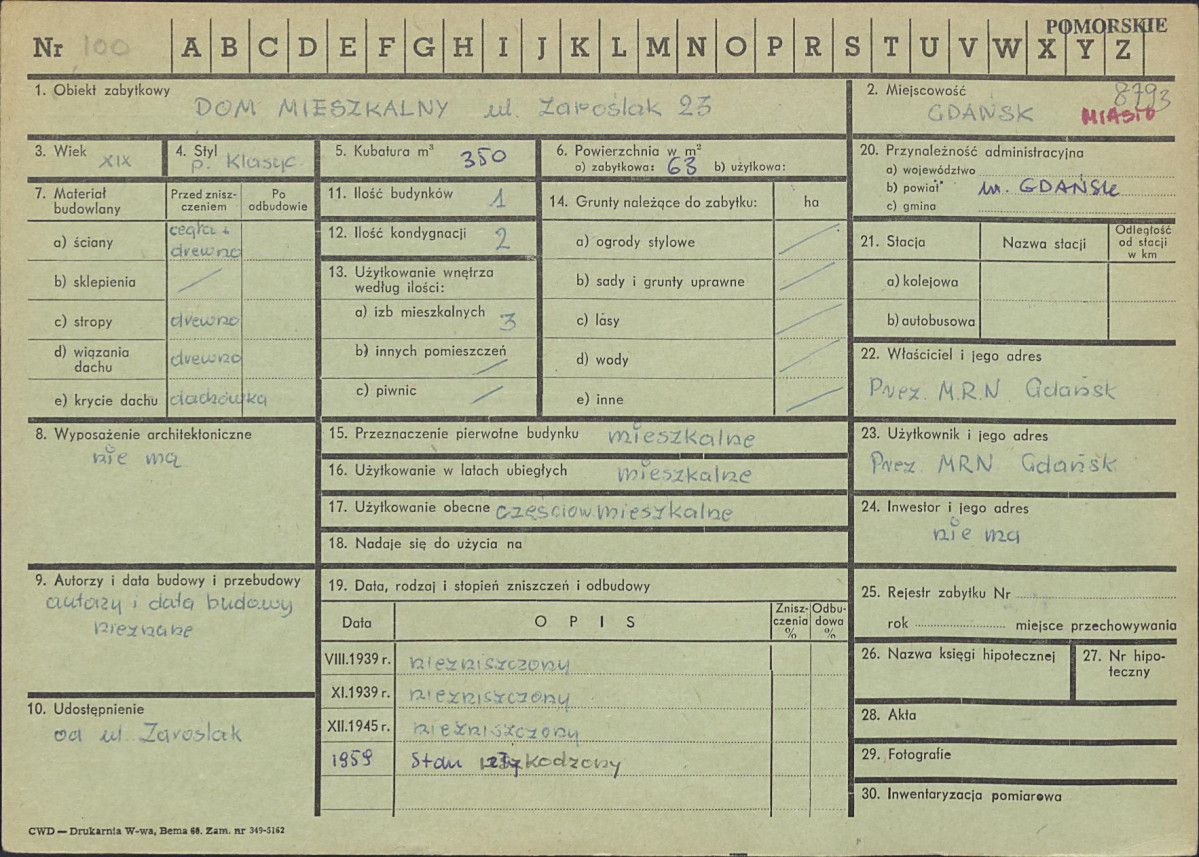 POMORSKIE
Nr 100 A B C D E F G H I J K L M N O P R S T U V W X Y Z
1. Obiekt zabytkowy
DOM MIESZKALNY ul. Zaroślak 23
2. Miejscowość 8793
GDAŃSK MIASTO
3. Wiek XIX
4. Styl p. Klasyc
5. Kubatura m³ 350
6. Powierzchnia w m²
a) zabytkowa: 63 b) użytkowa:
7. Materiał budowlany
Przed zniszczeniem
Po odbudowie
a) ściany cegła + drewno
b) sklepienia /
c) stropy drewno
d) wiązania dachu drewno
e) krycie dachu dachówka
11. Ilość budynków 1
12. Ilość kondygnacji 2
13. Użytkowanie wnętrza
według ilości:
a) izb mieszkalnych 3
b) innych pomieszczeń /
c) piwnic /
14. Grunty należące do zabytku: ha
a) ogrody stylowe /
b) sady i grunty uprawne /
c) lasy /
d) wody /
e) inne /
20. Przynależność administracyjna
a) województwo
b) powiat m. GDAŃSK
c) gmina
21. Stacja
Nazwa stacji
Odległość
od stacji
w km
a) kolejowa
b) autobusowa
22. Właściciel i jego adres
Prez. M.R.N Gdańsk
8. Wyposażenie architektoniczne
nie ma
15. Przeznaczenie pierwotne budynku mieszkalne
16. Użytkowanie w latach ubiegłych mieszkalne
17. Użytkowanie obecne częściow. mieszkalne
18. Nadaje się do użycia na
23. Użytkownik i jego adres
Prez. MRN Gdańsk
24. Inwestor i jego adres
nie ma
9. Autorzy i data budowy i przebudowy
autorzy i data budowy
nieznane
10. Udostępnienie
od ul. Zaroślak
19. Data, rodzaj i stopień zniszczeń i odbudowy
Data OPIS Zniszczenia % Odbudowa %
VIII.1939 r. niezniszczony
XI.1939 r. niezniszczony
XII.1945 r. niezniszczony
1959 Stan
25. Rejestr zabytku Nr
rok miejsce przechowywania
26. Nazwa księgi hipotecznej
27. Nr hipoteczny
28. Akta
29. Fotografie
30. Inwentaryzacja pomiarowa
CWD — Drukarnia W-wa, Bema 60. Zam. nr 349-5162